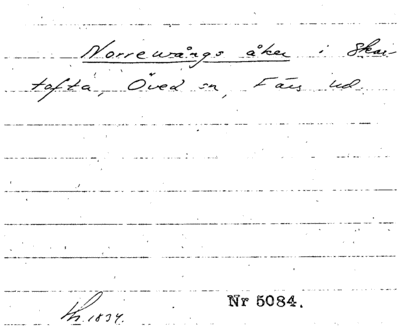 Norrewångs åker i Skar-
tofta, Öved sn, Färs hd.
Lh. 1834.
Nr 5084.